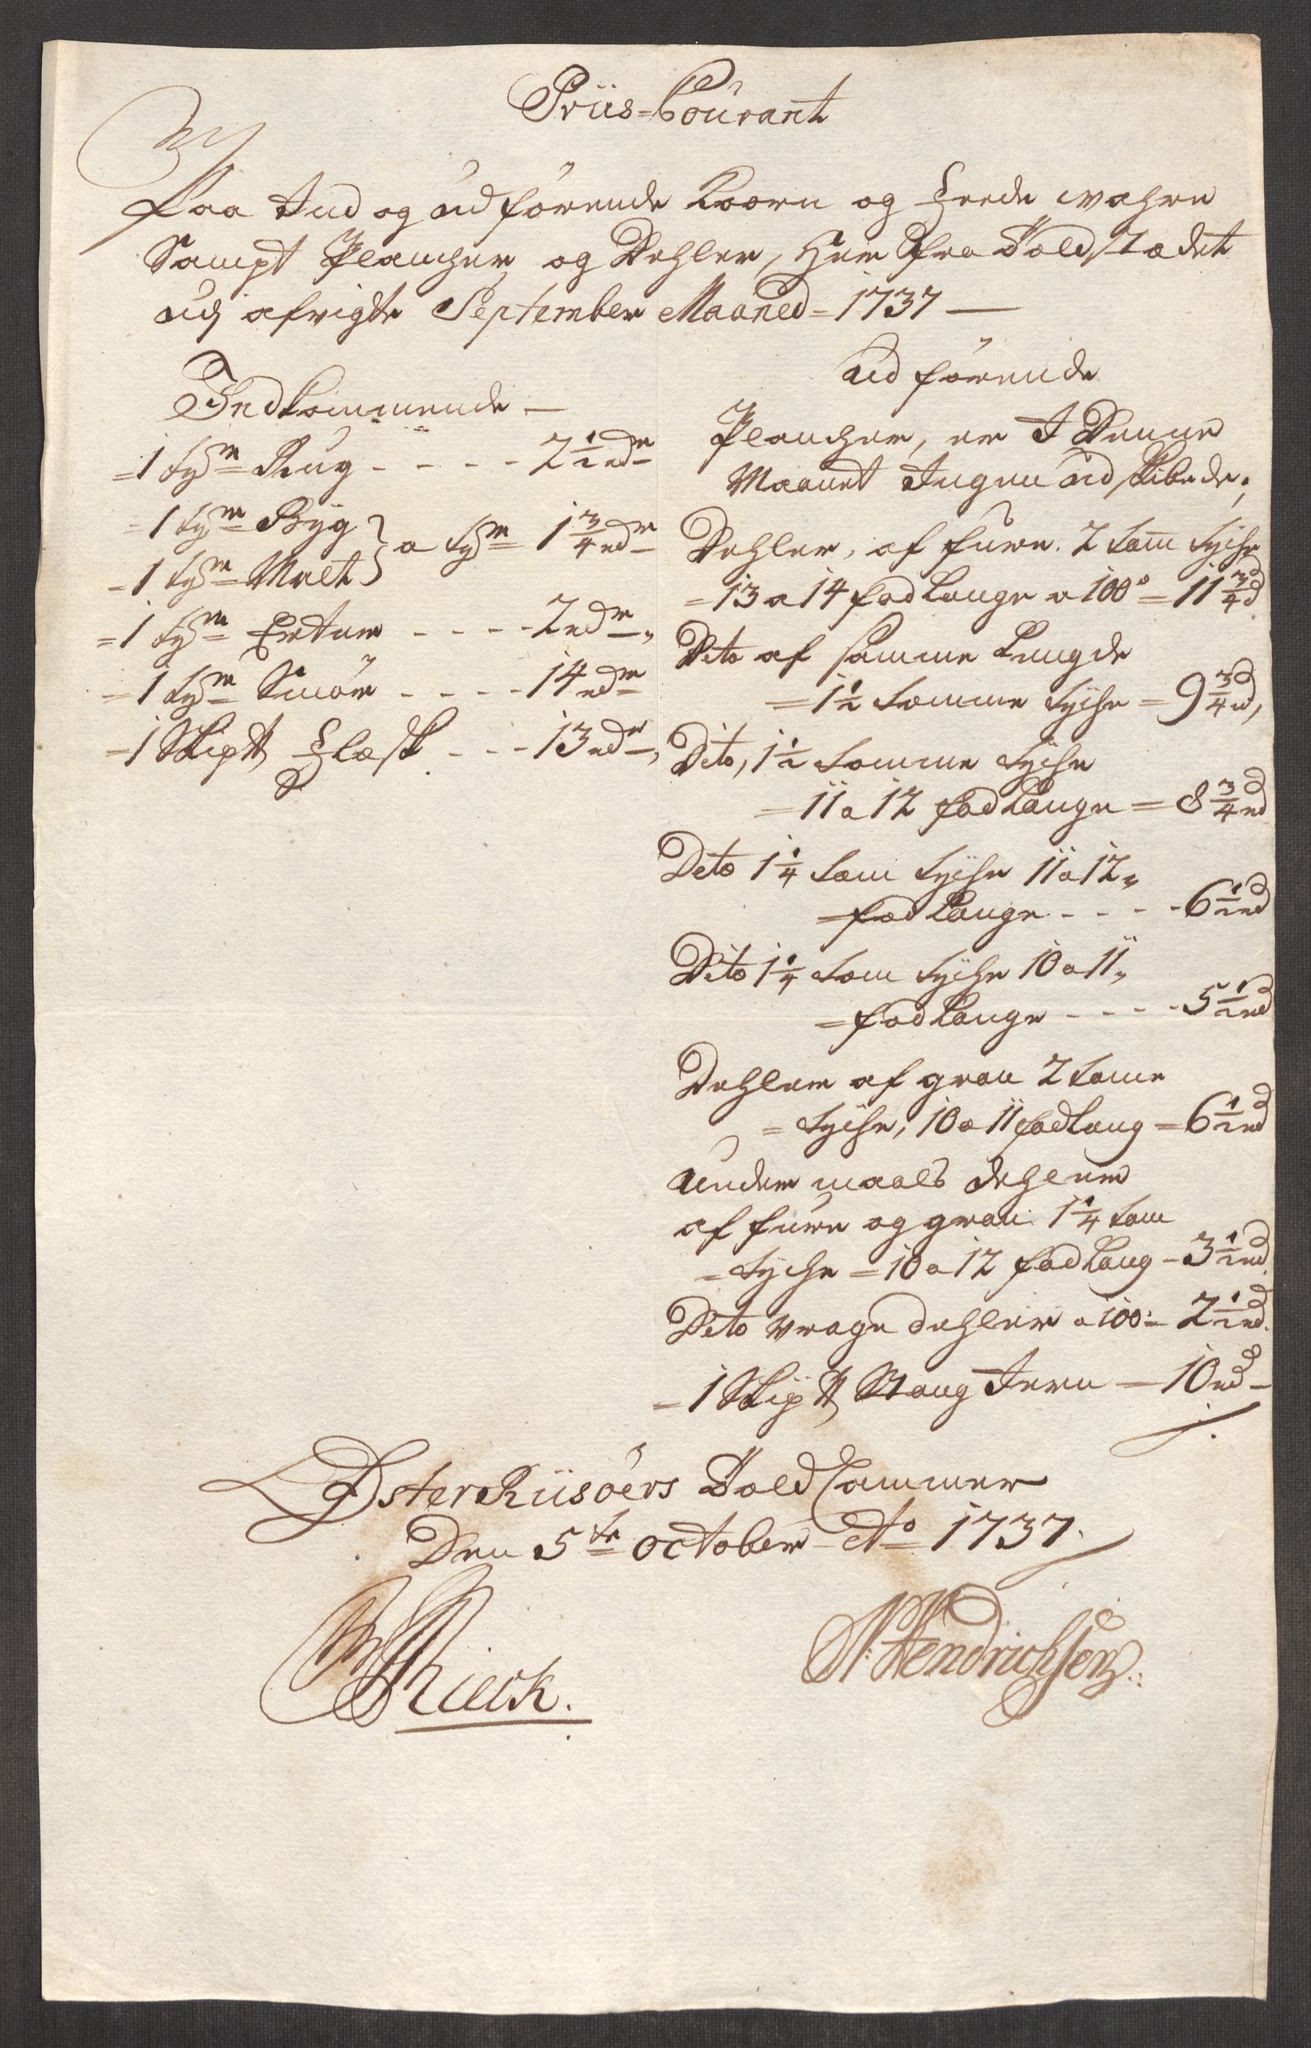 Priis-Courant
Paa Ind og udförende Koorn og Feede wahre
Sampt Plancher og Dehler, Her fra Toldstædet
udj afvigte September Maaned - 1737 —
Indkommende —
= 1 tþr Rug - - - - 2 1/2 rdr
= 1 tþr Byg
= 1 tþr Malt } a tþr 1 3/4 rdr
= 1 tþr Erter - - - - 2 rdr
= 1 tþr Smör - - - - 14 rdr
= 1 Skip℔ Flæsk - - - 13 rdr
Udförende
Plancher, er I Denne
Maanet Ingen udskibede,
Dehler, af fure. 2 tom tyche
= 13 a 14 fod Lange a 100 = 11 3/4 rd
Dito af samme Lengde
= 1 1/2 tomme tyche = 9 3/4 rd,
Dito, 1 1/2 tomme tyche
= 11 a 12 fod Lange = 8 3/4 rd
Dito 1 1/4 tom tyche 11 a 12
= fod Lange - - - - 6 1/2 rd
Dito 1 1/4 tom tyche 10 a 11
= fod Lange - - - - 5 1/2 rd
Dehler af gran 2 tome
= tyche, 10 a 11 fod Lang = 6 1/2 rd
Under maals dehler
af fure og gran 1 1/4 tom
= tyche = 10 a 12 fod Lang - 3 1/2 rd
Dito vrage dehler a 100: 2 1/2 rd.
= 1 Skip℔ Stang Jern — 10 rd —
Öster Riisöers Told Cammer
Den 5te October Ao 1737.
N: Hendrichsen